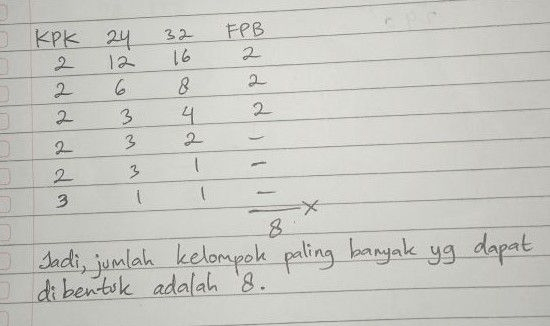 KPK 24 32 FPB
2 12 16 2
2 6 8 2
2 3 4 2
2 3 2 -
2 3 1 -
3 1 1 -
8 ×
Jadi, jumlah kelompok paling banyak yg dapat
dibentuk adalah 8.